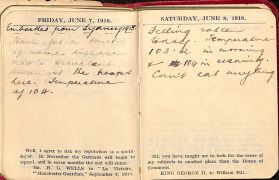 FRIDAY, JUNE 7, 1918.
Embarked from Sydney 1918.
Have got a touch
of some disease
that's prevalent
amongst the troops
here. Temperature
of 104.
Well, I agree to risk my reputation as a sooth-
sayer. In November the Germans will begin to
squeal, and in seven months the end will come.
Mr. H. G. WELLS in "La Victoire,"
"Manchester Guardian," September 9, 1916.
SATURDAY, JUNE 8, 1918.
Feeling rotten
today. Temperature
103.2 in morning
& 104 in evening.
Can't eat anything
Sir, you have taught me to look for the sense of
my subjects in another place than the House of
Commons.
KING GEORGE II. to William Pitt.